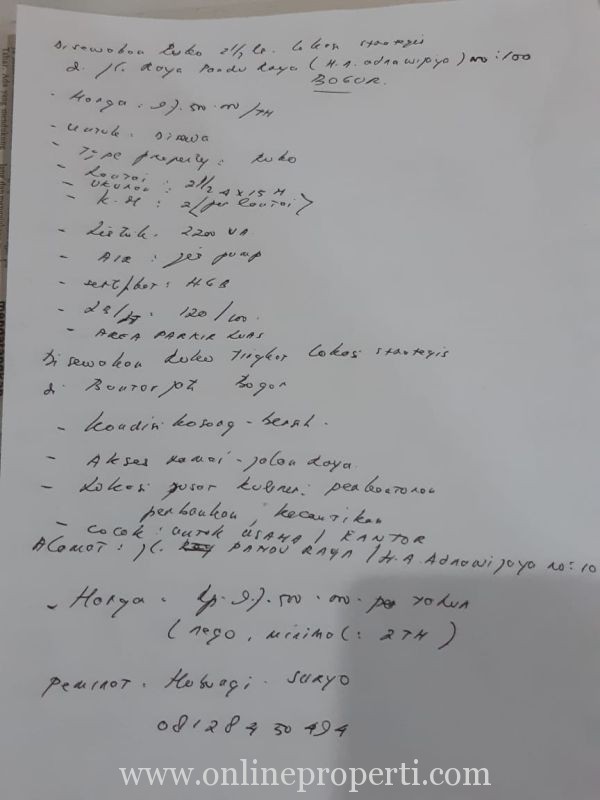 Disewakan Ruko 2 1/2 Lt. lokasi strategis
di Jl. Raya Pandu Raya (H.A. adnawijaya) no: 100
BOGOR.
- Harga: 97.500.000/TH
- untuk: Disewa
- Type property: Ruko
- Lantai: 2 1/2
- Ukuran: 4 x 15 M.
- K.M: 2 (per lantai)
- Listrik. 2200 VA
- AIR: jet pump
- sertfkat: HGB
- LB/LT: 120/100.
- AREA PARKIR LUAS
Disewakan Ruko tingkat lokasi strategis
di Bantarjati Bogor
- Kondisi kosong - bersih.
- Akses ramai - jalan Raya.
- Lokasi pusat kuliner,
perbankan, kecantikan
- COCOK: untuk USAHA / KANTOR
Alamat: Jl. PANDU RAYA / H.A. Adnawijaya no: 10
- Harga: Rp. 97.500.000. per Tahun
(nego, minimal: 2TH)
Peminat. Hubungi. SURYO
08128430494
www.onlineproperti.com